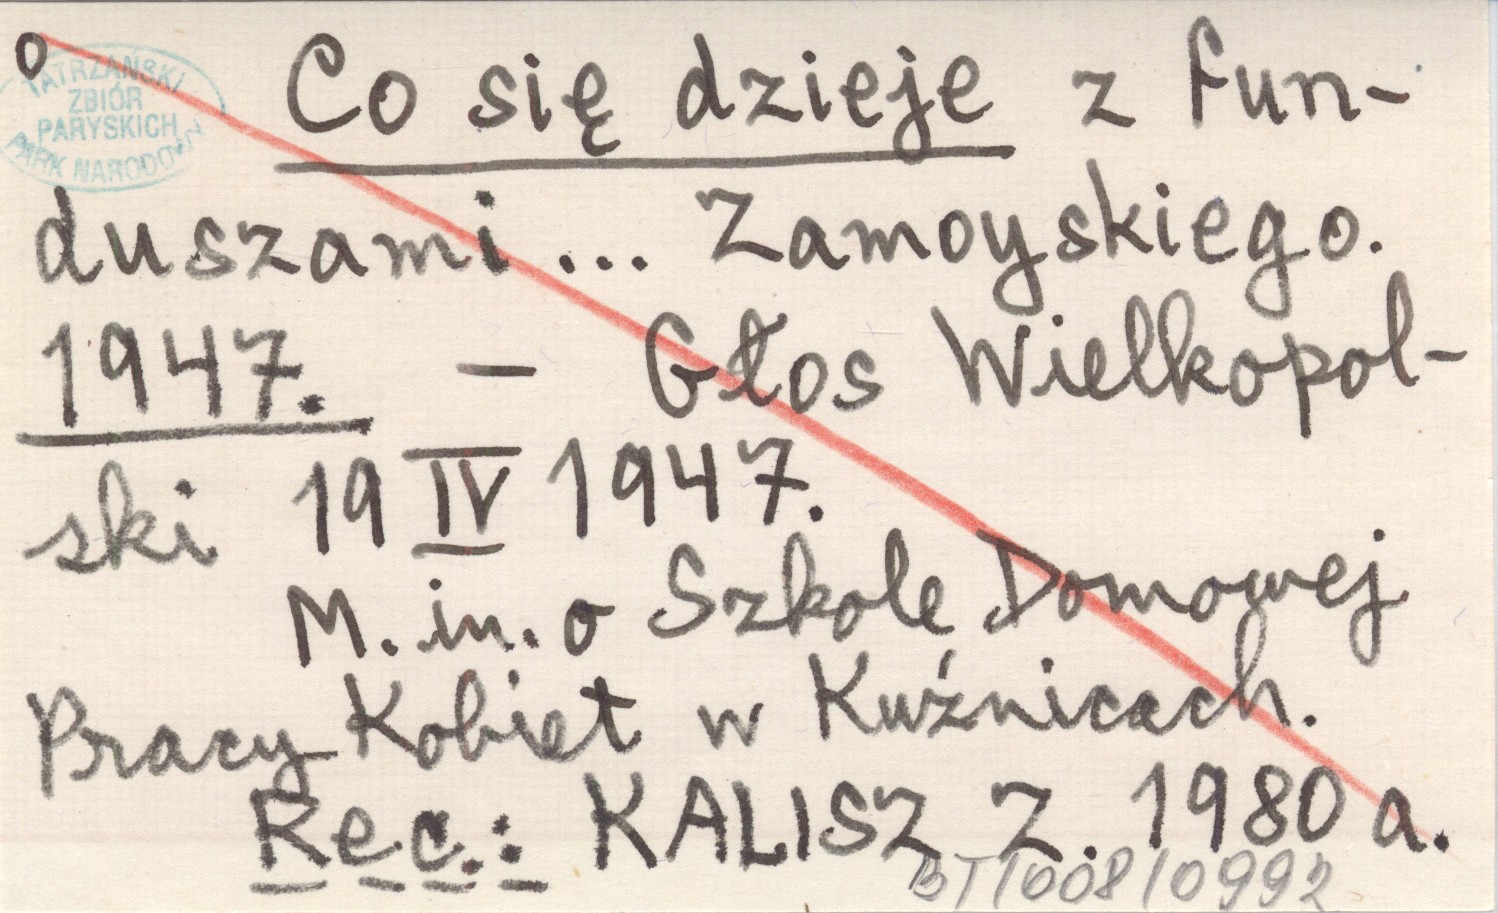 o
TATRZAŃSKI
ZBIÓR
PARYSKICH
PARK NARODOWY
Co się dzieje z Fun-
duszami ... Zamoyskiego.
1947. – Głos Wielkopol-
ski 19 IV 1947.
M. in. o Szkole Domowej
Pracy Kobiet w Kuźnicach.
Rec.: KALISZ Z. 1980 a.
BT/008/0992